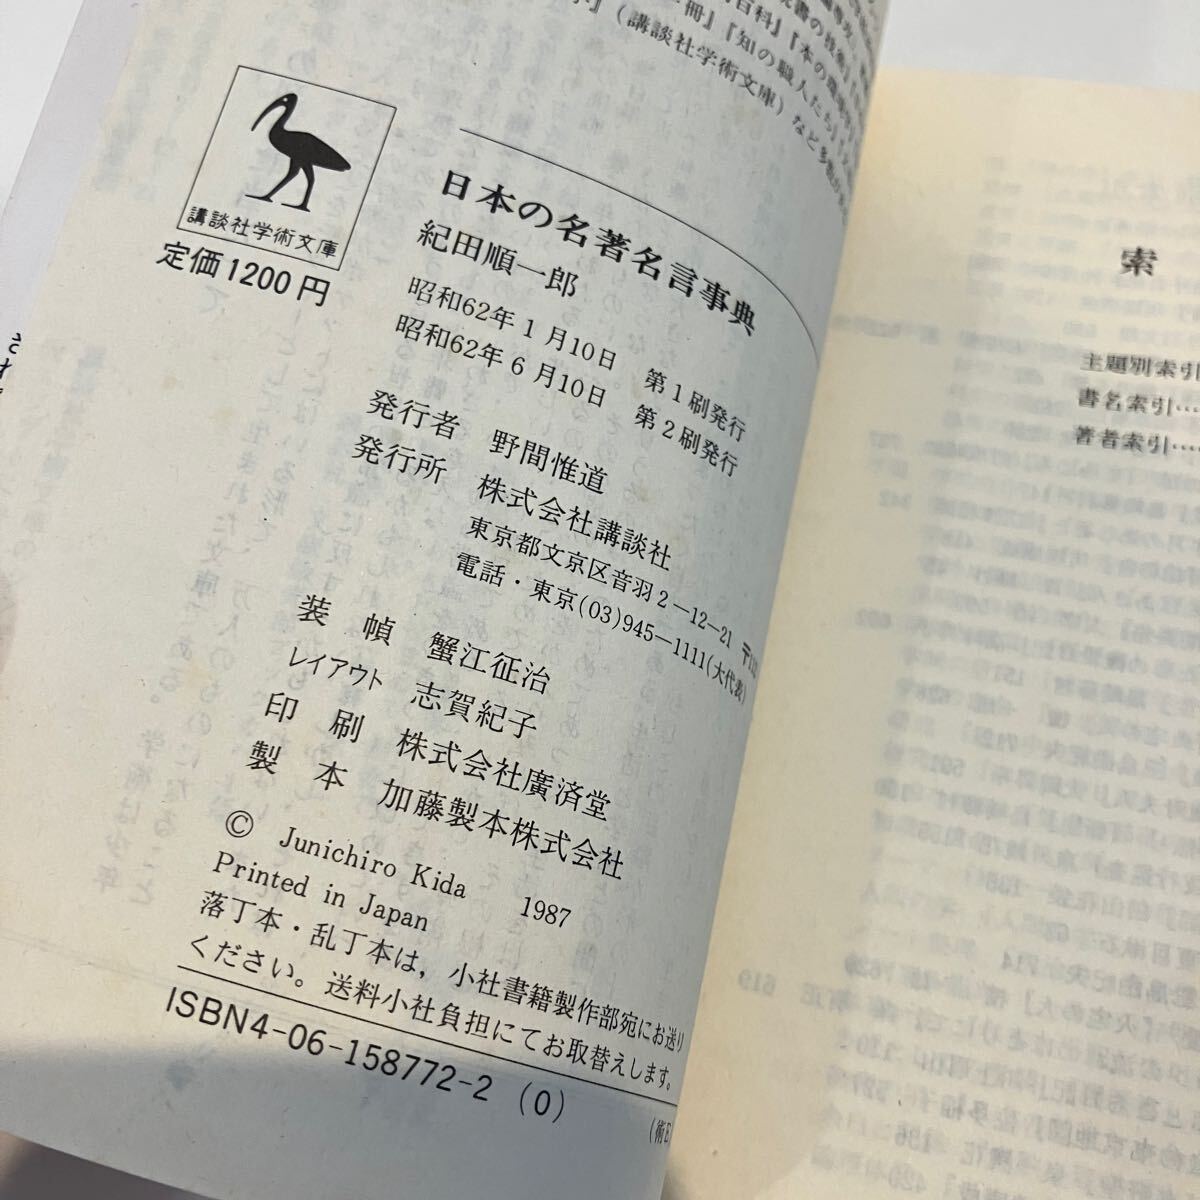 講談社学術文庫
定価1200円
日本の名著名言事典
紀田順一郎
昭和62年1月10日 第1刷発行
昭和62年6月10日 第2刷発行
発行者 野間惟道
発行所 株式会社講談社
東京都文京区音羽2-12-21 〒
電話・東京(03)945-1111(大代表)
装幀 蟹江征治
レイアウト 志賀紀子
印刷 株式会社廣済堂
製本 加藤製本株式会社
© Junichiro Kida 1987
Printed in Japan
落丁本・乱丁本は，小社書籍製作部宛にお送り
ください。送料小社負担にてお取替えします。
ISBN4-06-158772-2 (0)
(術E
冊』『知の職人たち』
(講談社学術文庫) など多数
索
主題別索引
書名索引……
著者索引……